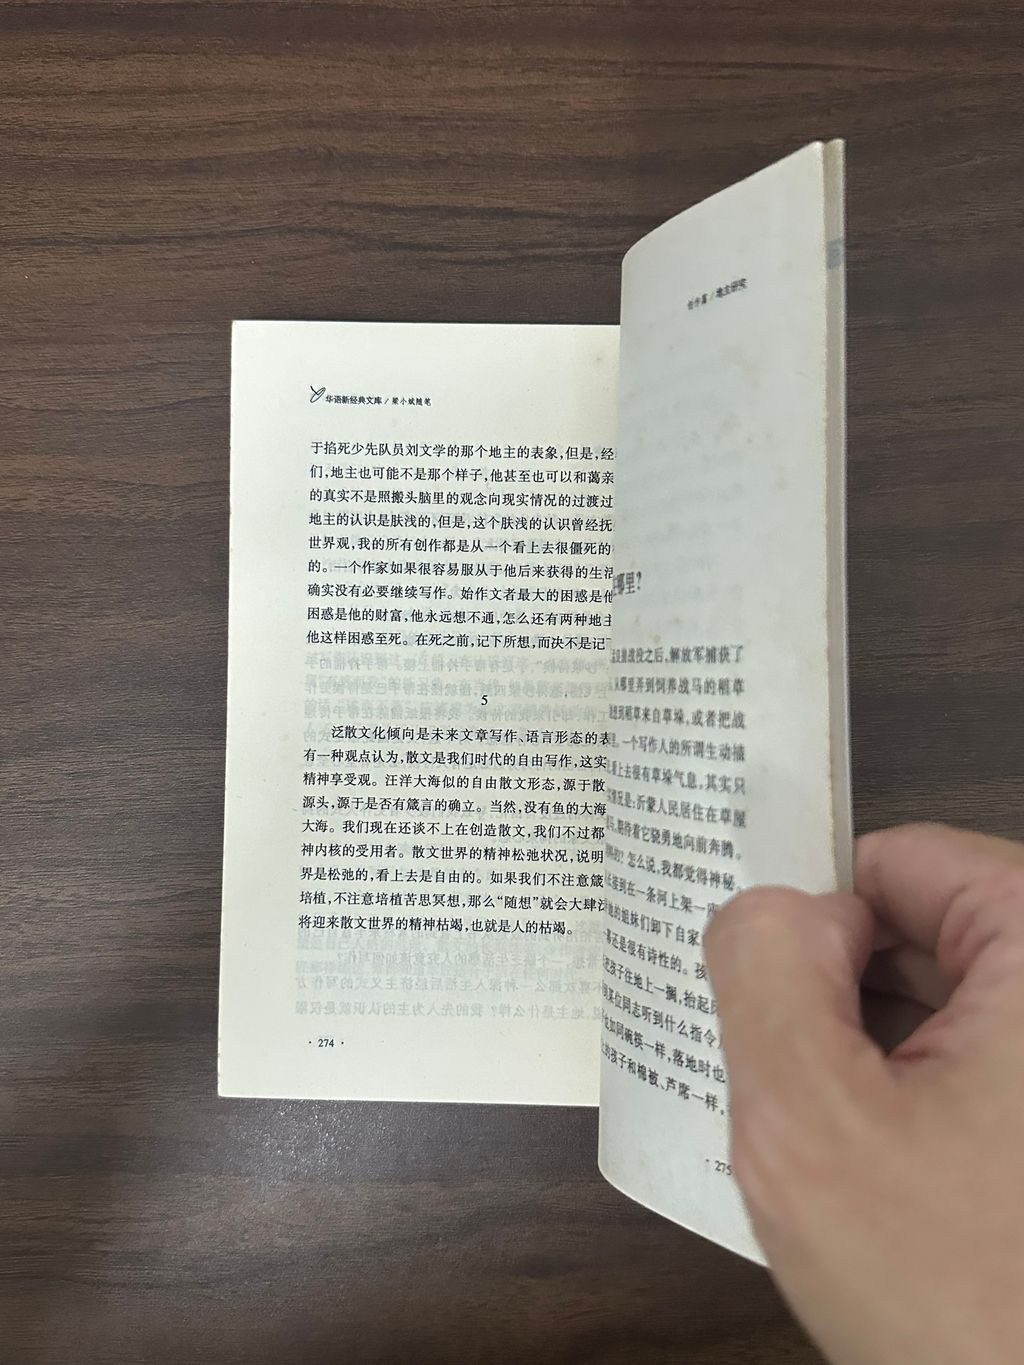 华语新经典文库 / 梁小斌随笔
于掐死少先队员刘文学的那个地主的表象,但是,经
们,地主也可能不是那个样子,他甚至也可以和蔼亲
的真实不是照搬头脑里的观念向现实情况的过渡过
地主的认识是肤浅的,但是,这个肤浅的认识曾经抚
世界观,我的所有创作都是从一个看上去很僵死的
的。一个作家如果很容易服从于他后来获得的生活
确实没有必要继续写作。始作文者最大的困惑是他
困惑是他的财富,他永远想不通,怎么还有两种地主
他这样困惑至死。在死之前,记下所想,而决不是记
5
泛散文化倾向是未来文章写作、语言形态的表
有一种观点认为,散文是我们时代的自由写作,这实
精神享受观。汪洋大海似的自由散文形态,源于散
源头,源于是否有箴言的确立。当然,没有鱼的大海
大海。我们现在还谈不上在创造散文,我们不过都
神内核的受用者。散文世界的精神松弛状况,说明
界是松弛的,看上去是自由的。如果我们不注意箴
培植,不注意培植苦思冥想,那么“随想”就会大肆
将迎来散文世界的精神枯竭,也就是人的枯竭。
· 274 ·
/ 地主研究
哪里?
战役之后,解放军捕获了
从哪里弄到饲养战马的稻草
想到稻草来自草垛,或者把战
一个写作人的所谓生动描
看上去很有草垛气息,其实只
情况是:沂蒙人民居住在草屋
马,期待着它骁勇地向前奔腾。
怎么说,我都觉得神秘。
接到在一条河上架一
他的姐妹们卸下自家
幕还是很有诗性的。孩
把孩子往地上一搁,抬起
某位同志听到什么指令
也如同碗筷一样,落地时也
的孩子和棉被、芦席一样,
· 275